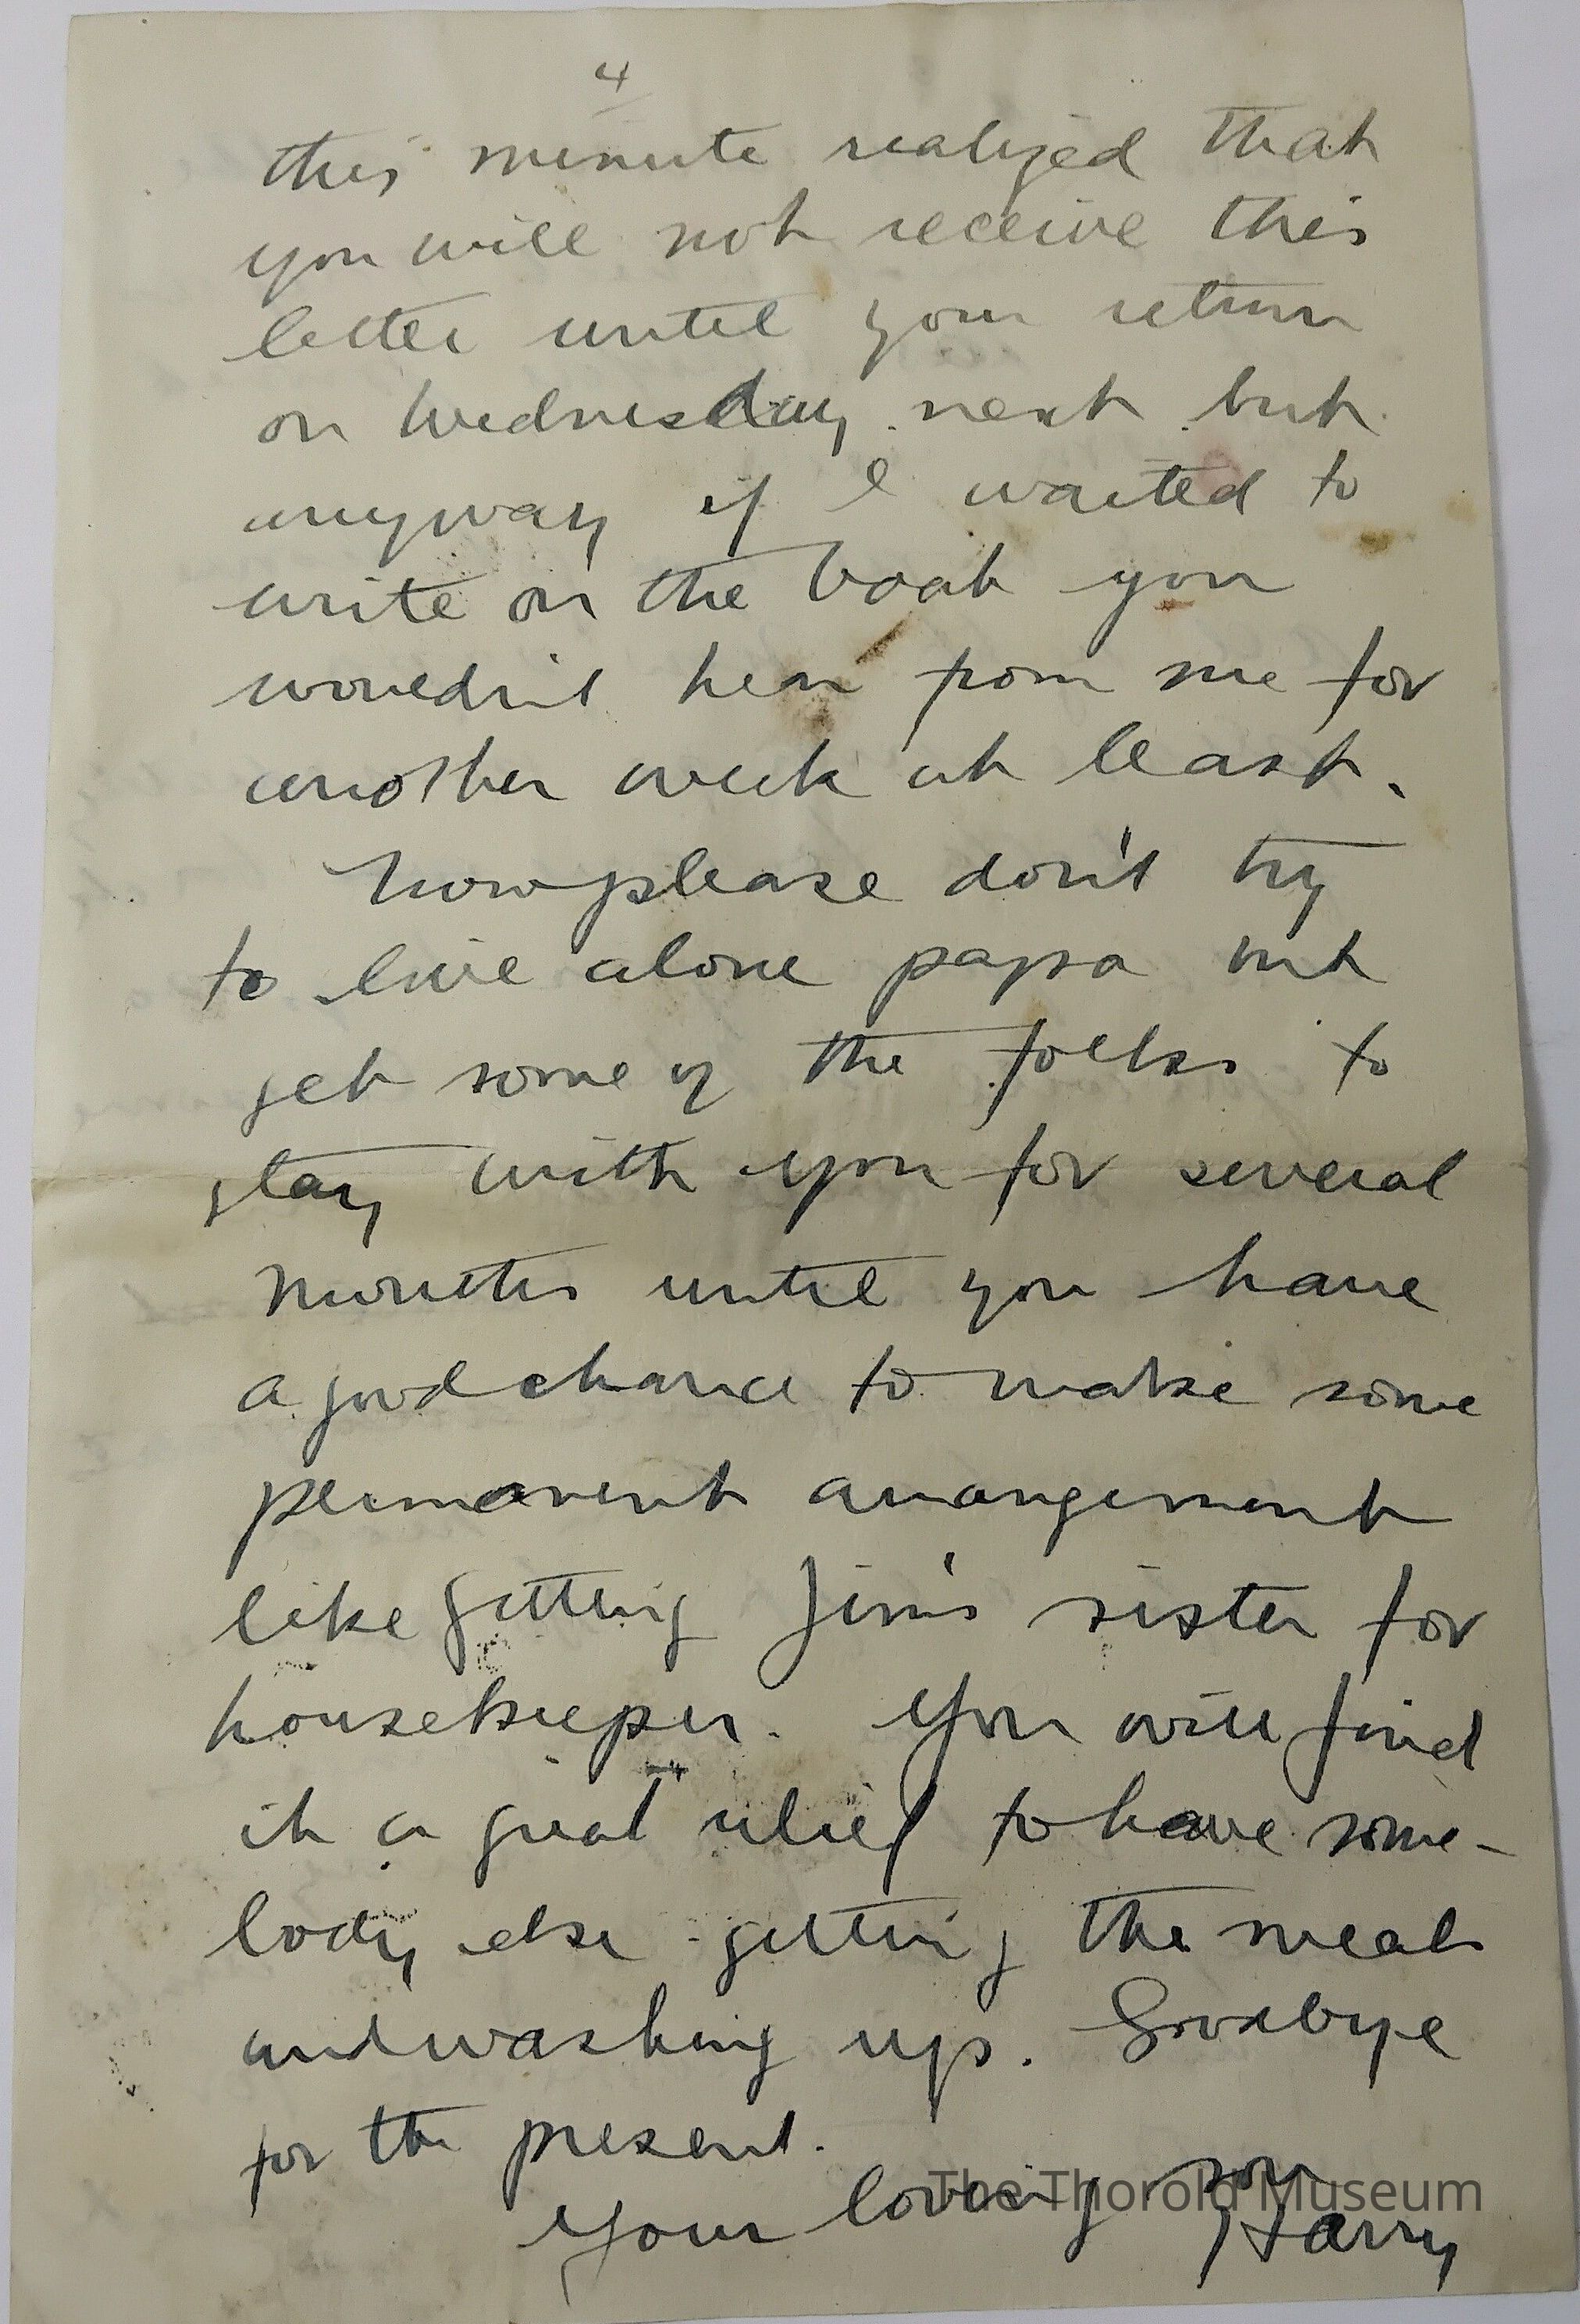 4
this minute realized that
you will not receive this
letter until your return
on Wednesday next but
anyway if I waited to
write on the boat you
wouldn't hear from me for
another week at least.
Now please don't try
to live alone papa but
get some of the folks to
stay with you for several
months until you have
a good chance to make some
permanent arrangement
like getting Jim's sister for
housekeeper. You will find
it a great relief to have some-
body else getting the meals
and washing up. Goodbye
for the present.
Your loving son
Harry
The Thorold Museum